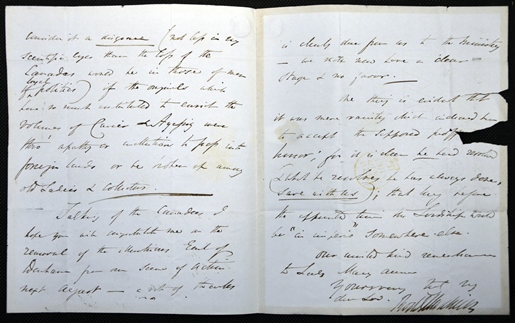 consider it a disgrace (not less in my
scientific eyes than the loss of the
Canadas would be in those of men
loyal
of politics) if the originals which
have so much contributed to enrich the
volumes of Cuvier & Agassiz were
thro' apathy or inattention to pass into
foreign lands or be broken up among
old Ladies & Collectors.
— Talking of the Canadas I
hope you will congratulate me on the
removal of the Earl of
Durham from our scene of action
next August — a vote of thanks
is clearly due from us to the Ministry
— we shall now have a clear
Stage & no favor.
One thing is evident that
it was mere vanity which induced him
to accept the supposed post
honor; for it is clear he had
& that he always does,
that they before
he appeared his Lordship would
be "in imperio" somewhere else.
Our united kind remembrances
to Lady Mary
Yours very truly my
dear Lord.